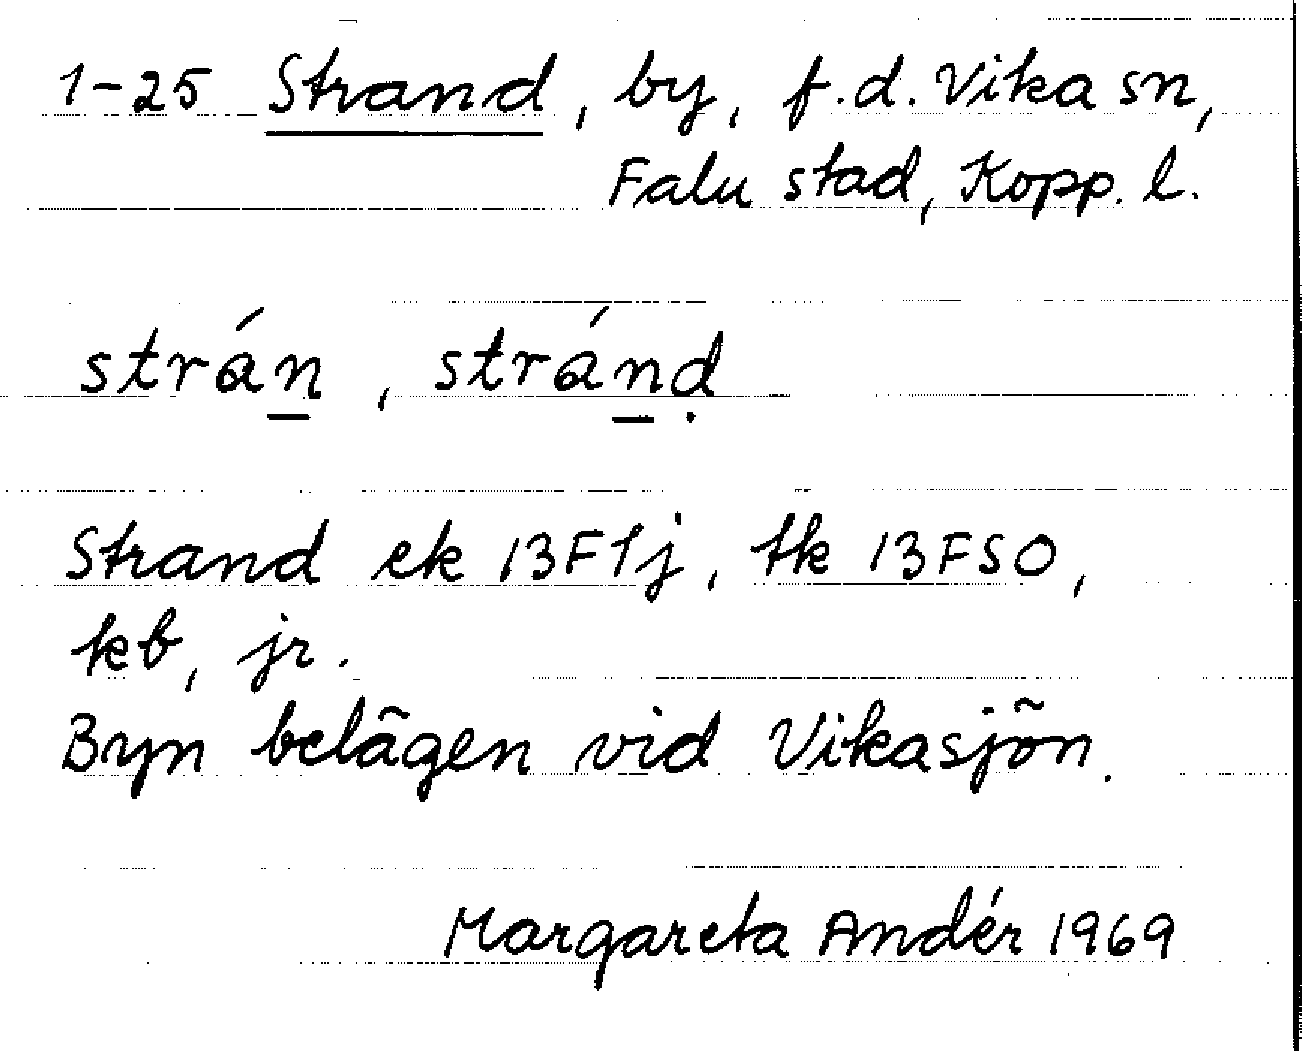 1-25 Strand, by, f.d. Vika sn,
Falu stad, Kopp. l.
strán, stránḍ
Strand ek 13F1j, tk 13FSO,
kb, jr.
Byn belägen vid Vikasjön.
Margareta Andér 1969